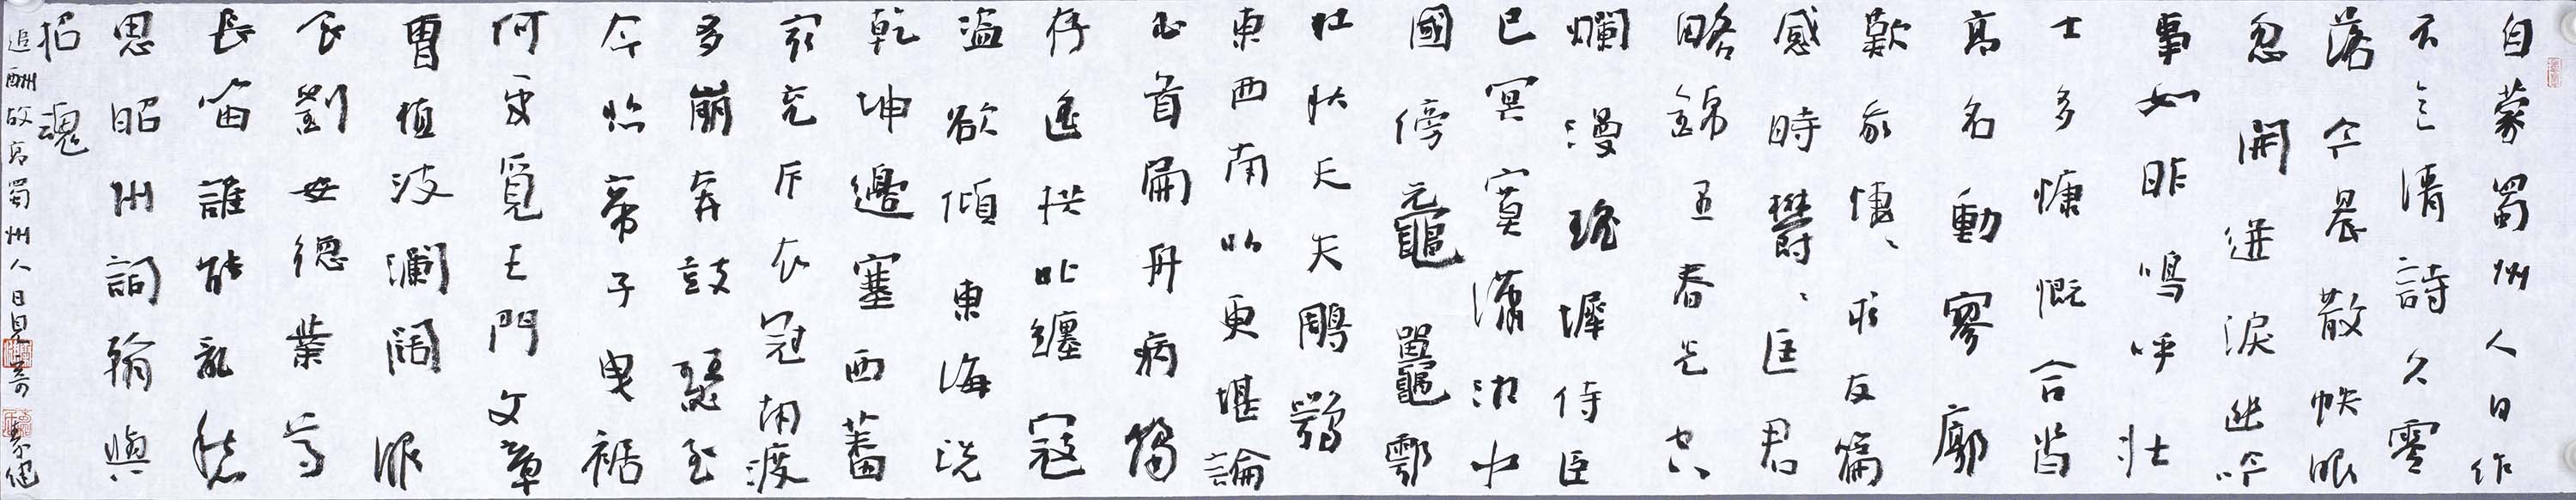 自蒙蜀州人日作
不意清詩久零
落今晨散帙眼
忽開迸淚幽吟
事如昨嗚呼壯
士多慷慨合沓
高名動寥廓
歎我悽、求友篇
感時鬱、匡君
略錦里春光空
爛漫瑤墀侍臣
已冥寞瀟湘水
國傍黿鼉鄠
杜秋天失鵰鶚
東西南北更堪論
白首扁舟病獨
存遙拱北纏寇
盜欲傾東海洗
乾坤邊塞西蕃
最充斥衣冠南渡
多崩奔鼓瑟至
今悲帝子曳裾
何處覓王門文章
曹植波瀾闊服
食劉安德業尊
長笛誰能亂愁
思昭州詞翰與
招魂
追酬故高蜀州人日見寄